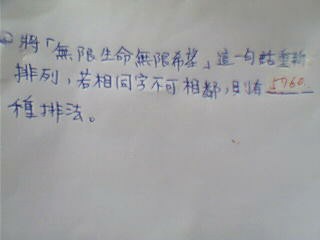 將「無限生命無限希望」這一句話重新
排列,若相同字不可相鄰,則有 5760
種排法。